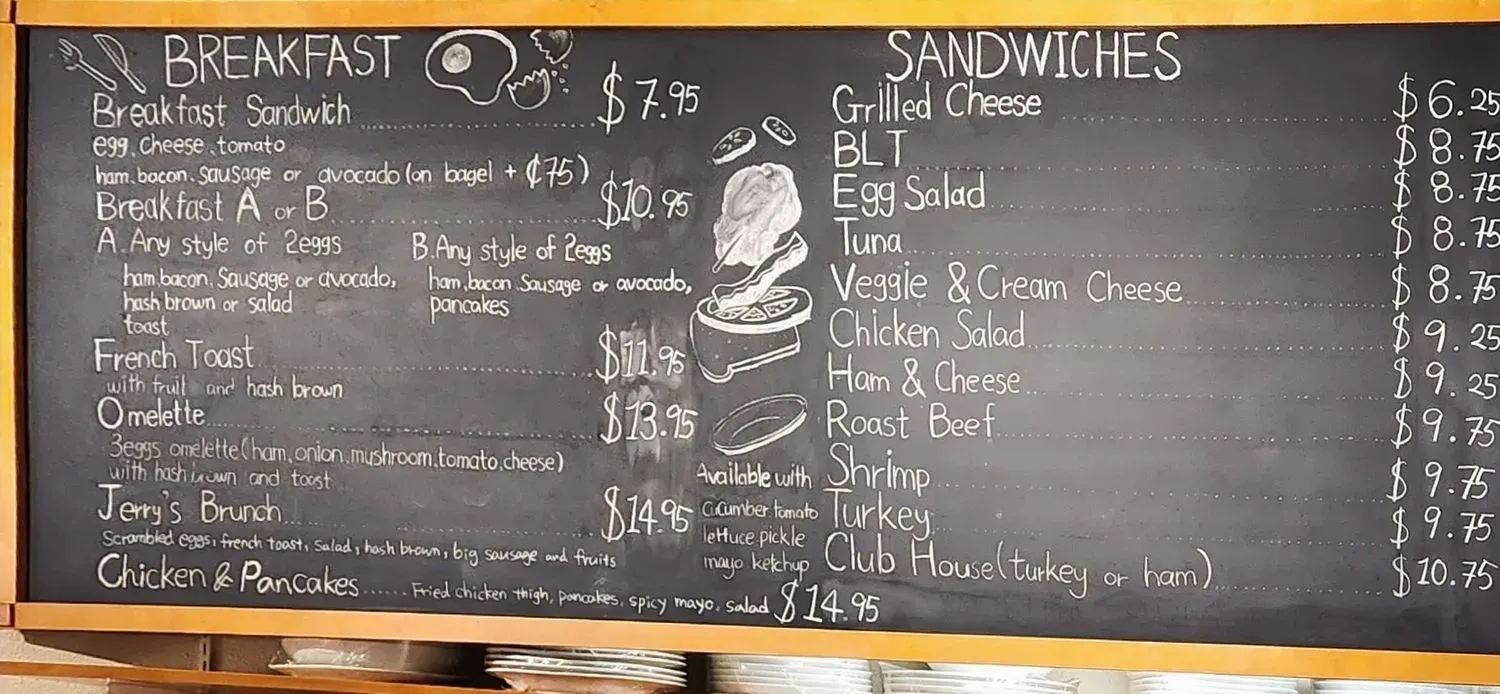 BREAKFAST
Breakfast Sandwich $7.95
egg.cheese.tomato
ham.bacon.sausage or avocado (on bagel + ¢75)
Breakfast A or B $10.95
A.Any style of 2eggs
ham.bacon.sausage or avocado,
hash brown or salad
toast
B.Any style of 2eggs
ham.bacon.sausage or avocado,
pancakes
French Toast $11.95
with fruit and hash brown
Omelette $13.95
3eggs omelette(ham.onion.mushroom.tomato.cheese)
with hash brown and toast
Jerry's Brunch $14.95
Scrambled eggs, french toast, salad, hash brown, big sausage and fruits
Chicken & Pancakes...... Fried chicken thigh, pancakes, spicy mayo, salad $14.95
Available with
cucumber tomato
lettuce pickle
mayo ketchup
SANDWICHES
Grilled Cheese $6.25
BLT $8.75
Egg Salad $8.75
Tuna $8.75
Veggie & Cream Cheese $8.75
Chicken Salad $9.25
Ham & Cheese $9.25
Roast Beef $9.75
Shrimp $9.75
Turkey $9.75
Club House(turkey or ham) $10.75